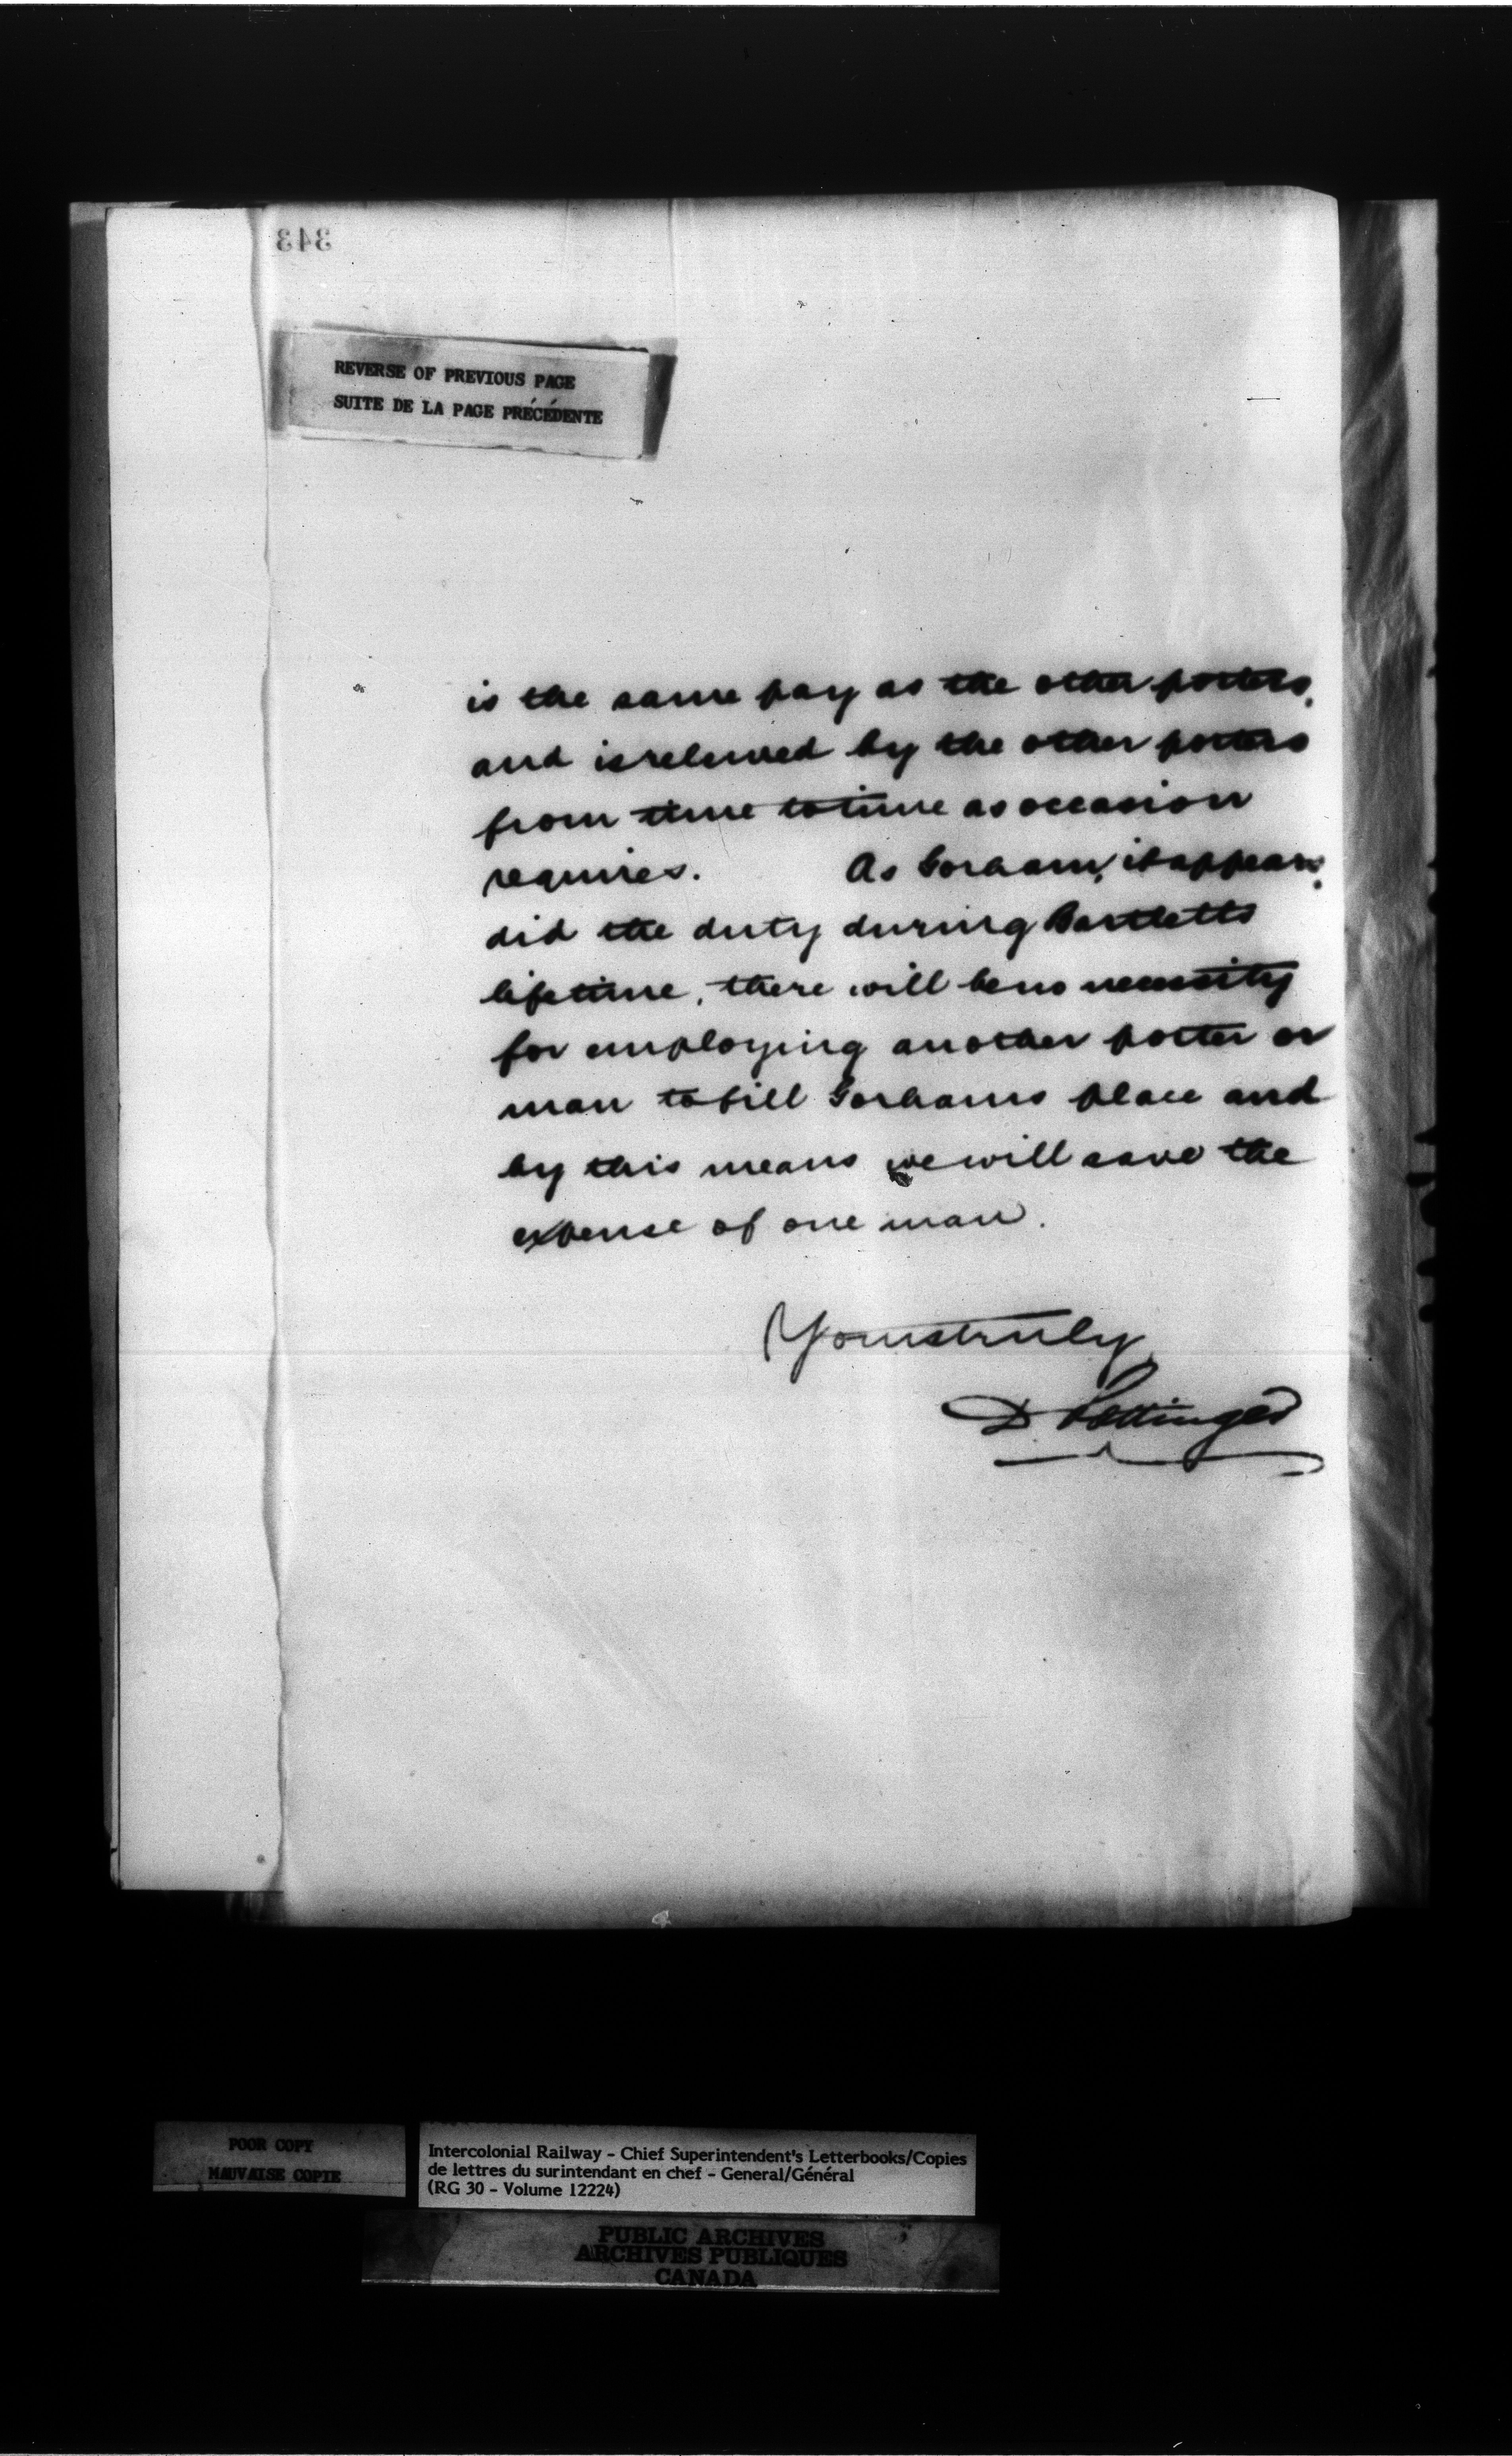 343
REVERSE OF PREVIOUS PAGE
SUITE DE LA PAGE PRÉCÉDENTE
is the same pay as the other porters,
and is relieved by the other porters
from time to time as occasion
requires. As Gorham, it appears,
did the duty during Bartletts
lifetime, there will be no necessity
for employing another porter or
man to fill Gorhams place and
by this means we will save the
expense of one man.
Yours truly
D Pottinger
POOR COPY
MAUVAISE COPIE
Intercolonial Railway - Chief Superintendent's Letterbooks/Copies
de lettres du surintendant en chef - General/Général
(RG 30 - Volume 12224)
PUBLIC ARCHIVES
ARCHIVES PUBLIQUES
CANADA